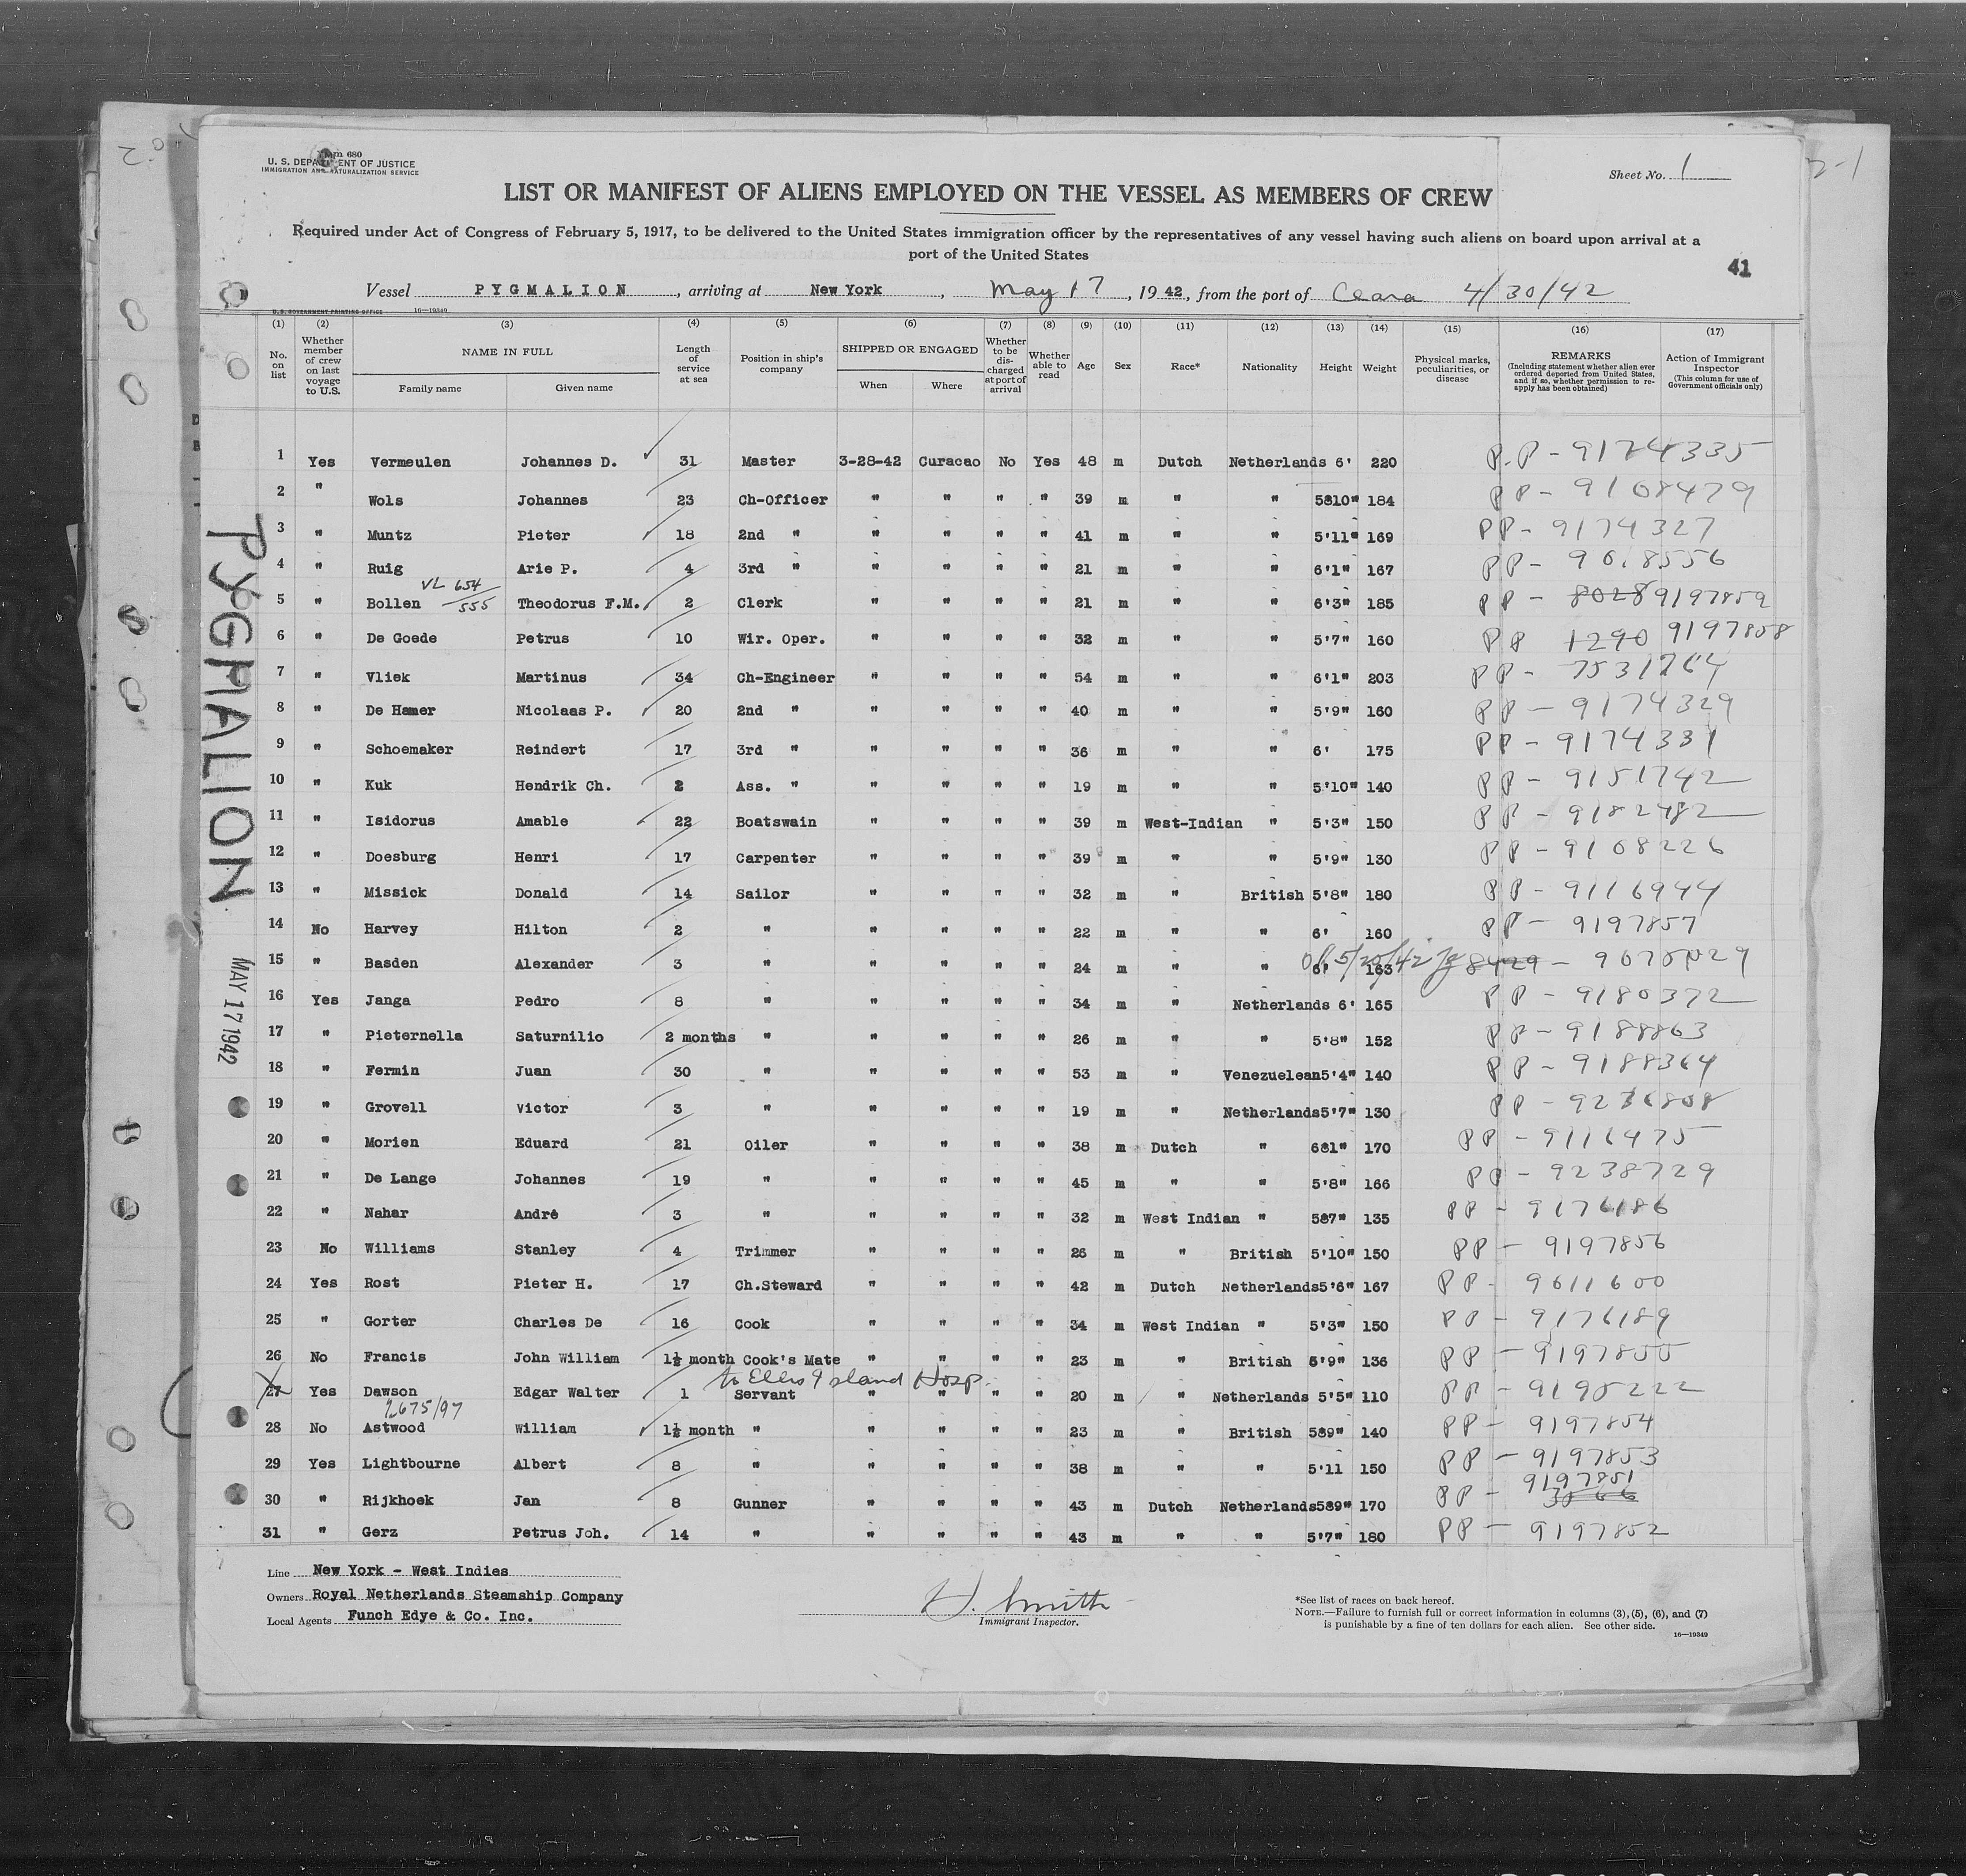 Form 680
U. S. DEPARTMENT OF JUSTICE
IMMIGRATION AND NATURALIZATION SERVICE
Sheet No. 1
LIST OR MANIFEST OF ALIENS EMPLOYED ON THE VESSEL AS MEMBERS OF CREW
Required under Act of Congress of February 5, 1917, to be delivered to the United States immigration officer by the representatives of any vessel having such aliens on board upon arrival at a
port of the United States
41
Vessel PYGMALION, arriving at New York, May 17, 1942, from the port of Ceara 4/30/42
U.S. GOVERNMENT PRINTING OFFICE 16—19349
(1) (2) (3) (4) (5) (6) (7) (8) (9) (10) (11) (12) (13) (14) (15) (16) (17)
No. on list
Whether member of crew on last voyage to U.S.
NAME IN FULL
Family name
Given name
Length of service at sea
Position in ship's company
SHIPPED OR ENGAGED
When
Where
Whether to be discharged at port of arrival
Whether able to read
Age
Sex
Race*
Nationality
Height
Weight
Physical marks, peculiarities, or disease
REMARKS
(Including statement whether alien ever ordered deported from United States, and if so, whether permission to reapply has been obtained)
Action of Immigrant Inspector
(This column for use of Government officials only)
1 Yes Vermeulen Johannes D. 31 Master 3-28-42 Curacao No Yes 48 m Dutch Netherlands 6' 220 P.P - 9174335
2 " Wols Johannes 23 Ch-Officer " " " " 39 m " " 5810" 184 PP - 9108479
3 " Muntz Pieter 18 2nd " " " " " 41 m " " 5'11" 169 PP - 9174327
4 " Ruig Arie P. 4 3rd " " " " " 21 m " " 6'1" 167 PP - 9018556
VL 654/555
5 " Bollen Theodorus F.M. 2 Clerk " " " " 21 m " " 6'3" 185 PP - 8028 9197859
6 " De Goede Petrus 10 Wir. Oper. " " " " 32 m " " 5'7" 160 PP 1290 9197858
7 " Vliek Martinus 34 Ch-Engineer " " " " 54 m " " 6'1" 203 PP - 7531764
8 " De Hamer Nicolaas P. 20 2nd " " " " " 40 m " " 5'9" 160 PP - 9174329
9 " Schoemaker Reindert 17 3rd " " " " " 36 m " " 6' 175 PP - 9174331
10 " Kuk Hendrik Ch. 2 Ass. " " " " " 19 m " " 5'10" 140 PP - 9151742
11 " Isidorus Amable 22 Boatswain " " " " 39 m West-Indian " 5'3" 150 PP - 9182482
12 " Doesburg Henri 17 Carpenter " " " " 39 m " " 5'9" 130 PP - 9108226
13 " Missick Donald 14 Sailor " " " " 32 m " British 5'8" 180 PP - 9116944
14 No Harvey Hilton 2 " " " " " 22 m " " 6' 160 PP - 9197857
15 " Basden Alexander 3 " " " " " 24 m " " 6' 163 5/20/42 8429 -
16 Yes Janga Pedro 8 " " " " " 34 m " Netherlands 6' 165 PP - 9180372
17 " Pieternella Saturnilio 2 months " " " " " 26 m " " 5'8" 152 PP - 9188863
18 " Fermin Juan 30 " " " " " 53 m " Venezuelean 5'4" 140 PP - 9188364
19 " Grovell Victor 3 " " " " " 19 m " Netherlands 5'7" 130 PP - 9236808
20 " Morien Eduard 21 Oiler " " " " 38 m Dutch " 681" 170 PP - 9116475
21 " De Lange Johannes 19 " " " " " 45 m " " 5'8" 166 PP - 9238729
22 " Nahar André 3 " " " " " 32 m West Indian " 587" 135 PP - 9176186
23 No Williams Stanley 4 Trimmer " " " " 26 m " British 5'10" 150 PP - 9197856
24 Yes Rost Pieter H. 17 Ch.Steward " " " " 42 m Dutch Netherlands 5'6" 167 PP - 9611600
25 " Gorter Charles De 16 Cook " " " " 34 m West Indian " 5'3" 150 PP - 9176189
26 No Francis John William 1½ month Cook's Mate " " " " 23 m " British 5'9" 136 PP - 9197855
to Ellis Island Hosp.
27 Yes Dawson Edgar Walter 1 Servant " " " " 20 m " Netherlands 5'5" 110 PP - 9198222
2675/97
28 No Astwood William 1½ month " " " " " 23 m " British 589" 140 PP - 9197854
29 Yes Lightbourne Albert 8 " " " " " 38 m " " 5'11 150 PP - 9197853
30 " Rijkhoek Jan 8 Gunner " " " " 43 m Dutch Netherlands 589" 170 PP - 9197851
31 " Gerz Petrus Joh. 14 " " " " " 43 m " " 5'7" 180 PP - 9197852
PYGMALION
MAY 17 1942
Line New York - West Indies
Owners Royal Netherlands Steamship Company
Local Agents Funch Edye & Co. Inc.
H. Smith
Immigrant Inspector.
*See list of races on back hereof.
NOTE.—Failure to furnish full or correct information in columns (3), (5), (6), and (7)
is punishable by a fine of ten dollars for each alien. See other side.
16—19349